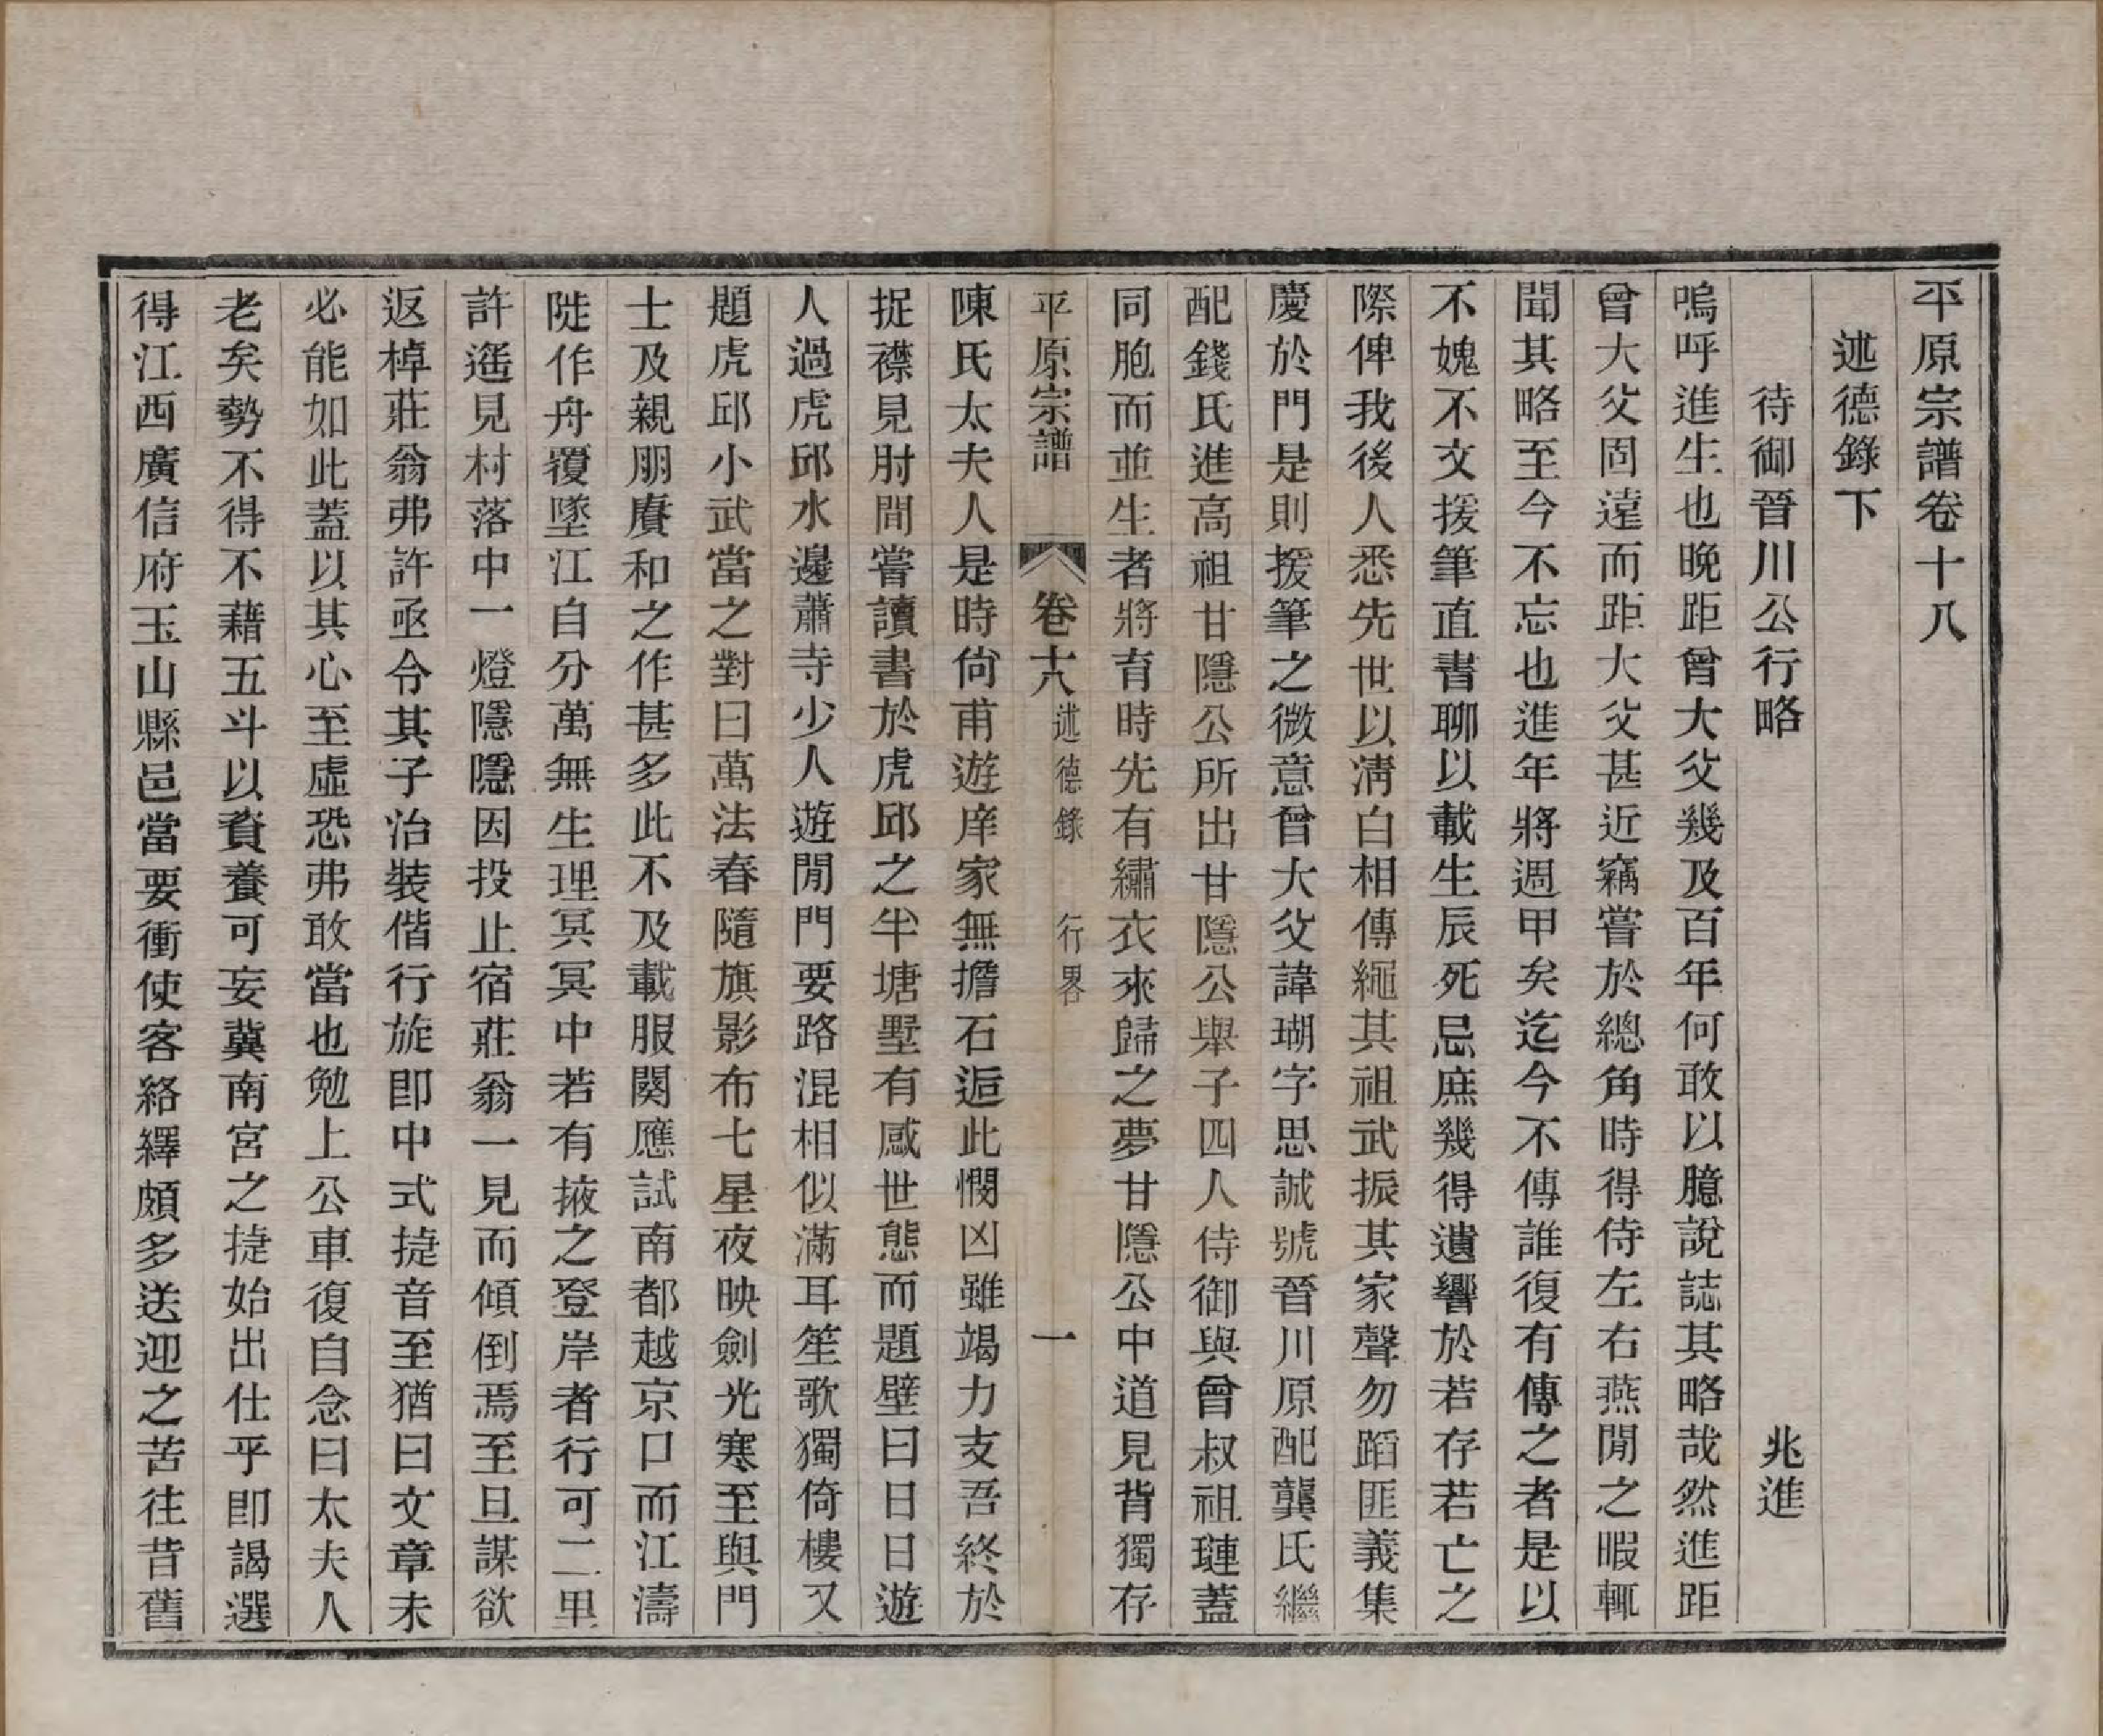 平原宗譜卷十八
述德錄下
待御晉川公行略 兆進
嗚呼進生也晚距曾大父幾及百年何敢以臆說誌其略哉然進距
曾大父固遠而距大父甚近竊嘗於總角時得侍左右燕閒之暇輒
聞其略至今不忘也進年將週甲矣迄今不傳誰復有傳之者是以
不媿不文援筆直書聊以載生辰死忌庶幾得遺響於若存若亡之
際俾我後人悉先世以淸白相傳繩其祖武振其家聲勿蹈匪義集
慶於門是則援筆之微意曾大父諱瑚字思誠號晉川原配龔氏繼
配錢氏進高祖甘隱公所出甘隱公舉子四人侍御與曾叔祖璉蓋
同胞而並生者將育時先有繡衣來歸之夢甘隱公中道見背獨存
平原宗譜 卷十八 述德錄 行畧 一
陳氏太夫人是時尙甫遊庠家無擔石逅此憫凶雖竭力支吾終於
捉襟見肘間嘗讀書於虎邱之半塘墅有感世態而題壁曰日日遊
人過虎邱水邊蕭寺少人遊閒門要路混相似滿耳笙歌獨倚樓又
題虎邱小武當之對曰萬法春隨旗影布七星夜映劍光寒至與門
士及親朋賡和之作甚多此不及載服闋應試南都越京口而江濤
陡作舟覆墜江自分萬無生理冥冥中若有掖之登岸者行可二里
許遙見村落中一燈隱隱因投止宿莊翁一見而傾倒焉至旦謀欲
返棹莊翁弗許亟令其子治裝偕行旋即中式捷音至猶曰文章未
必能如此蓋以其心至虛恐弗敢當也勉上公車復自念曰太夫人
老矣勢不得不藉五斗以資養可妄冀南宮之捷始出仕乎即謁選
得江西廣信府玉山縣邑當要衝使客絡繹頗多送迎之苦往昔舊